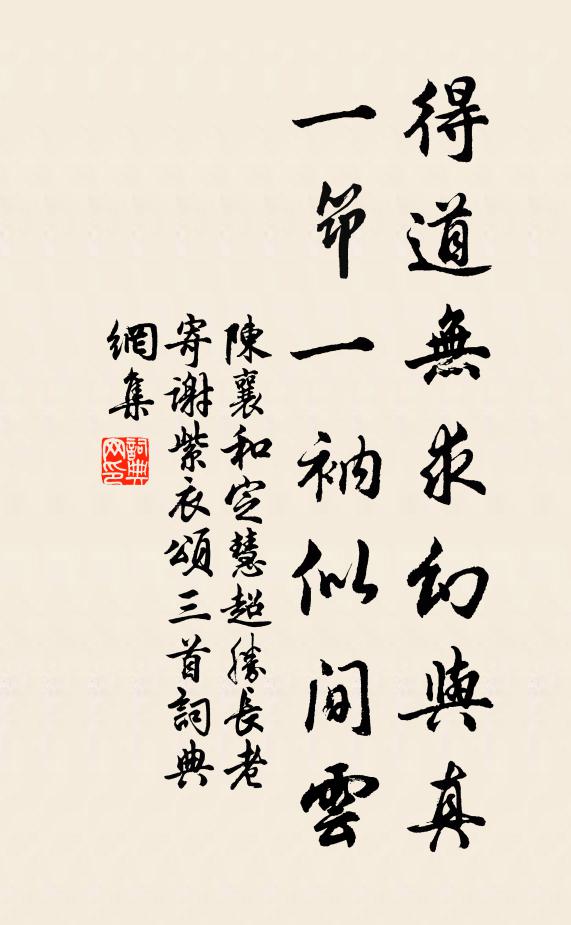 得道無求幻與真
一笻一衲似間雲
陳襄和定慧超勝長老
寄謝紫衣頌三首詞典
網集
詞典
网印